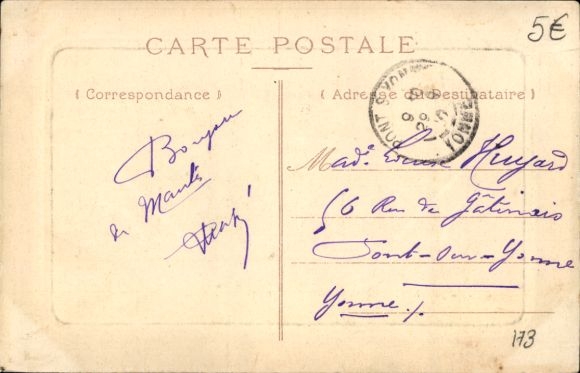 5€
CARTE POSTALE
( Correspondance )
( Adresse du Destinataire )
PONT S YONNE
YONNE
Bonjour
de Mantes
Made Louise Huyard
56 Rue de Gâtinais
Pont-sur-Yonne
Yonne
173